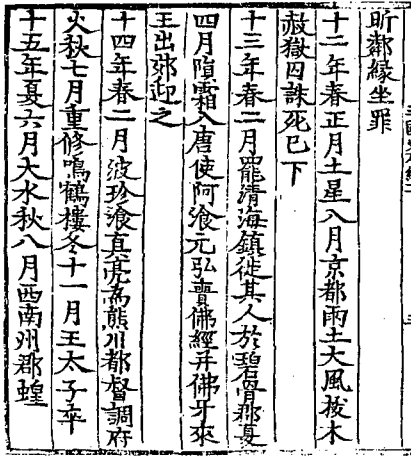 昕鄰緣坐罪
十二年春正月土星入月京都雨土大風拔木
赦獄囚誅死已下
十三年春二月罷清海鎮徙其人於碧骨郡夏
四月隕霜入唐使阿飡元弘賷佛經并佛牙來
王出郊迎之
十四年春二月波珍飡真亮爲熊川都督調府
火秋七月重修鳴鶴樓冬十一月王太子卒
十五年夏六月大水秋八月西南州郡蝗